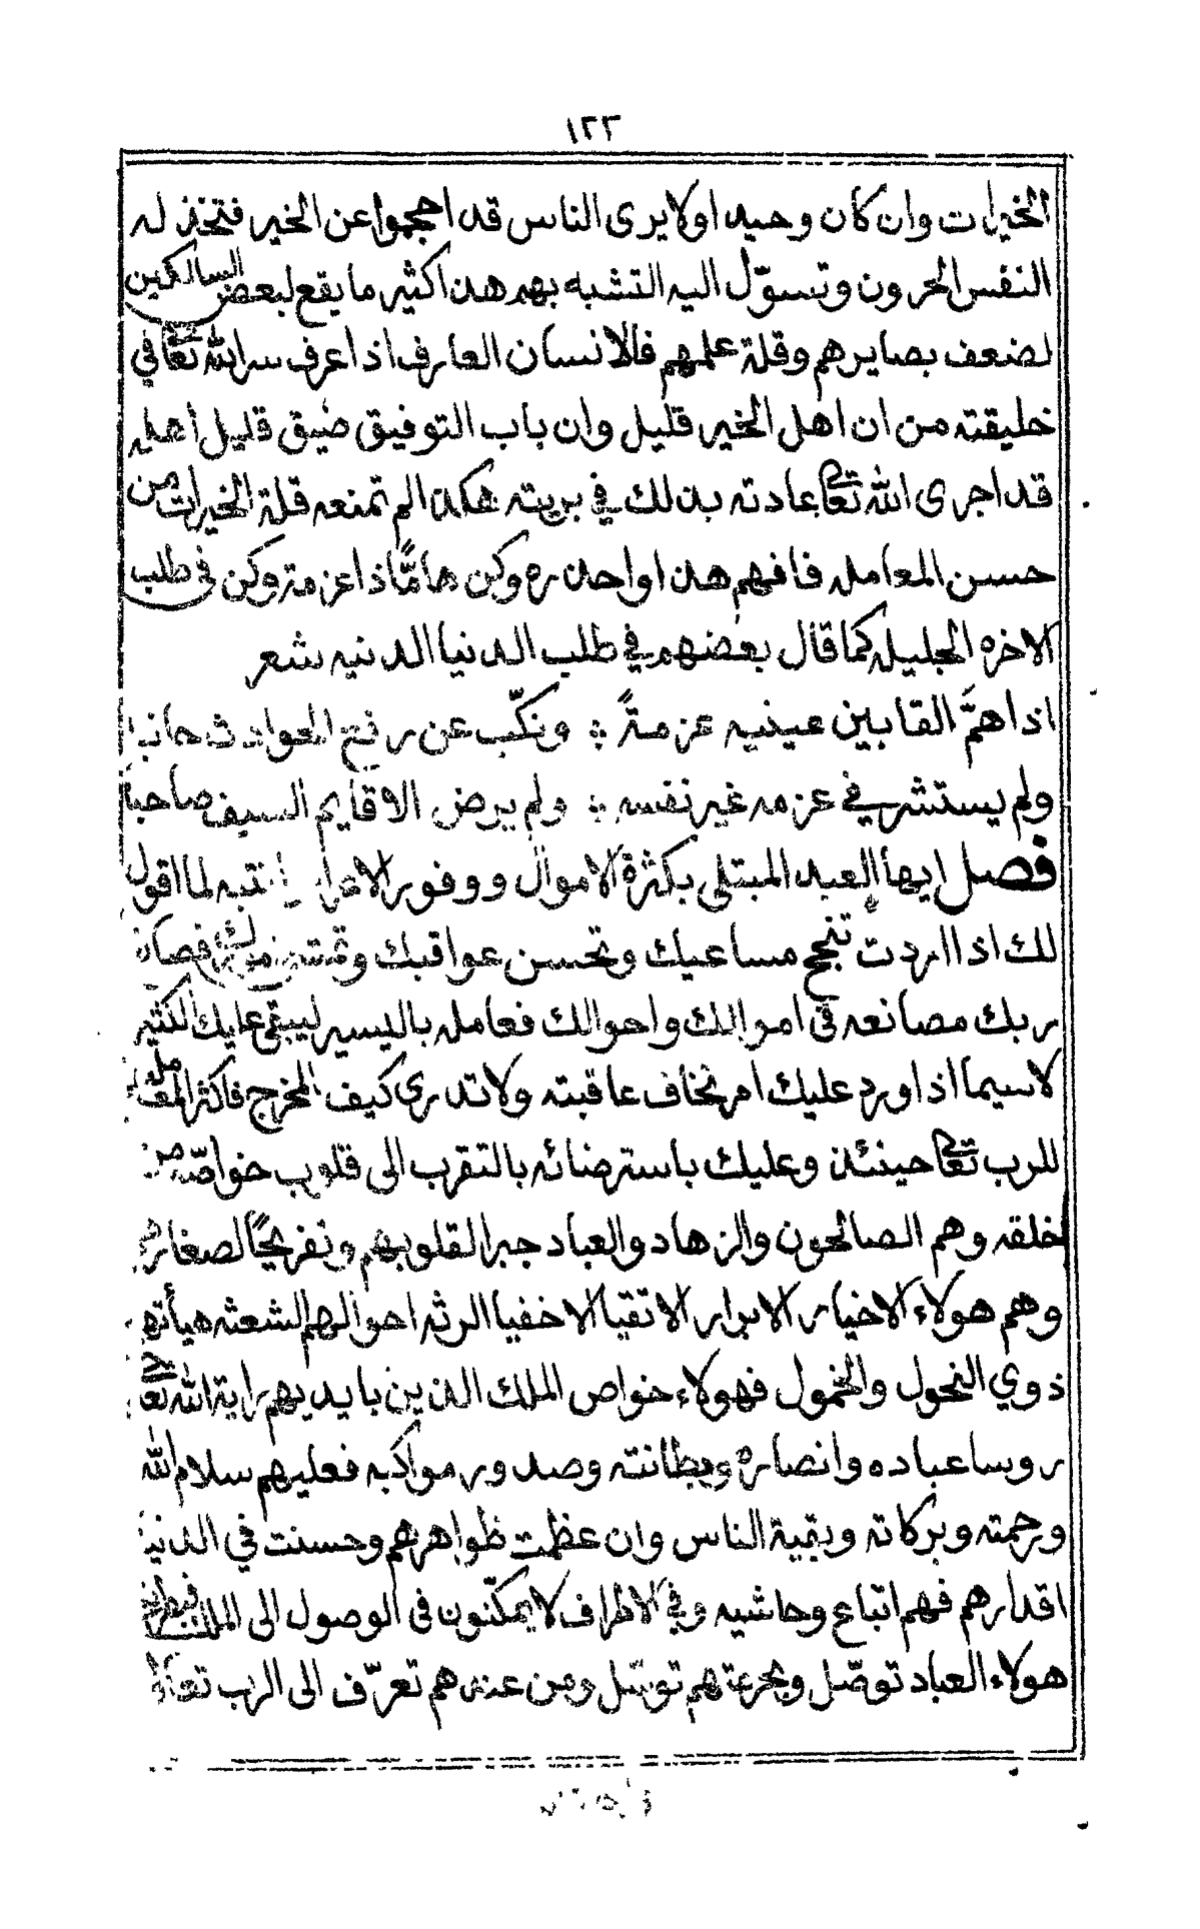 ١٢٣
الخيرات وان كان وحيدا ولا يرى الناس قد احجموا عن الخير فتتخذ له
النفس الحرون وتسوّل اليه التشبه بهم هذا اكثير ما يقع لبعض السالكين
لضعف بصايرهم وقلة علمهم فالانسان العارف اذا عرف سر الله تعالى في
خليقته من ان اهل الخير قليل وان باب التوفيق ضيق قليل اهله
قد اجرى الله تعالى عادته بذلك في بريته هكذا لم تمنعه قلة الخيرات من
حسن المعامله فافهم هذا واحذره وكن هامًّا ذا عزمة وكن في طلب
الاخره الجليله كما قال بعضهم في طلب الدنيا الدنيه شعر
اذا هَمَّ القا بين عينيه عزمةً ؛ ونكّب عن الحوادث جانبا
ولم يستشر في عزمه غير نفسه ؛ ولم يرض الا قايم السيف صاحبا
فصل ايها العبد المبتلى بكثرة الاموال ووفور انتبه لما اقول
لك اذا اردت تنجح مساعيك وتحسن عواقبك فصانع
ربك مصانعه في اموالك واحوالك فعامله باليسير ليبقى عليك الكثير
لاسيما اذا ورد عليك امر تخاف عاقبته ولا تدري كيف المخرج فاكثر المعامله
للرب تعالى حينئذ وعليك باسترضائه بالتقرب الى قلوب خواصّه من
خلقه وهم الصالحون والزهاد والعباد جبرا لقلوبهم وتفريحًا لصغارهم
وهم هولاء الاخيار الابرار الاتقيا الاخفيا الرثه احوالهم الشعثه هيأتهم
ذوي النحول والخمول فهولاء خواص الملك الذين بايديهم راية الله تعالى
روسا عباده وانصاره وبطانته وصدور مواكبه فعليهم سلام الله
ورحمته وبركاته وبقية الناس وان عظمت ظواهرهم وحسنت في الدنيا
اقدارهم فهم اتباع وحاشيه وفي الاطراف لا يمكّنون في الوصول الى الملك
هولاء العباد توصّل وبحرمتهم توسّل ومن عندهم تعرّف الى الرب تعالى